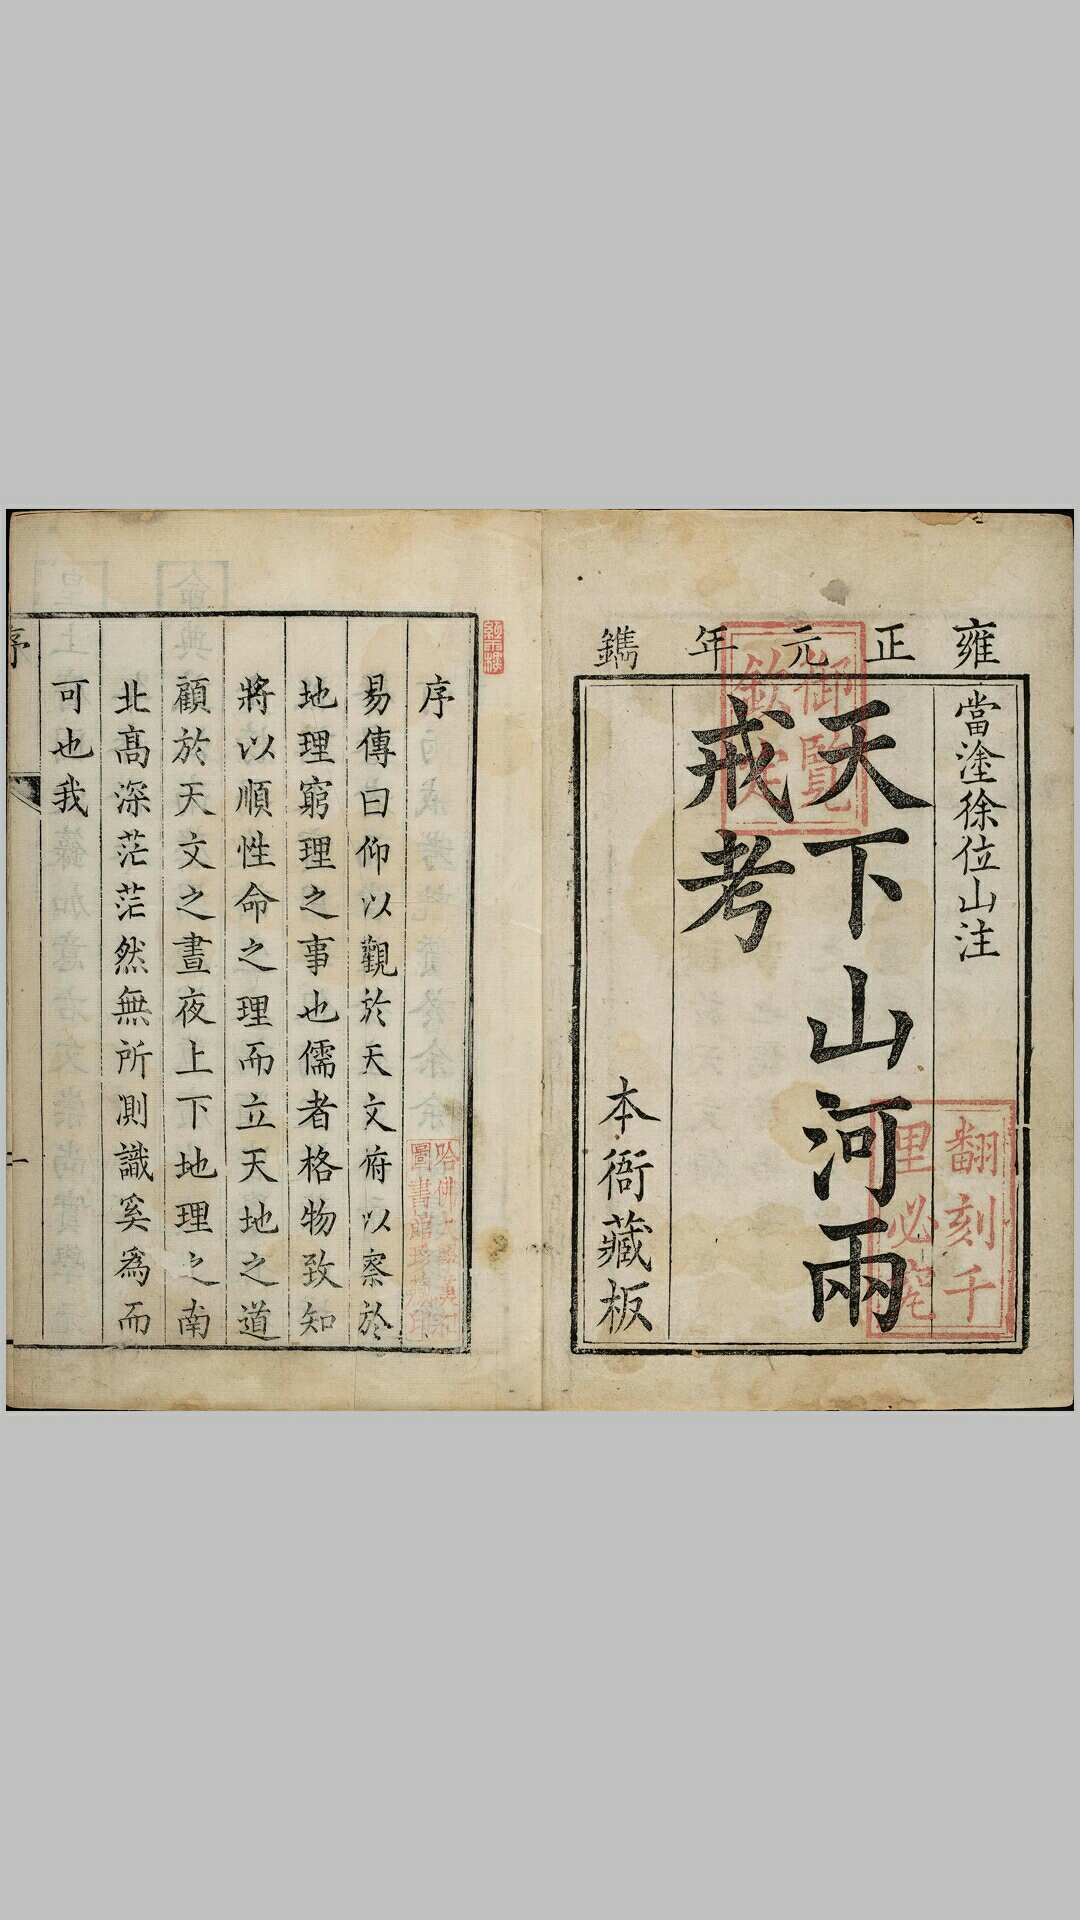 雍正元年鐫
當塗徐位山注
天下山河兩
戒考
本衙藏板
御覽
欽定
翻刻千
里必究
序
易傳曰仰以觀於天文俯以察於
地理窮理之事也儒者格物致知
將以順性命之理而立天地之道
顧於天文之晝夜上下地理之南
北高深茫茫然無所測識奚為而
可也我
序
一